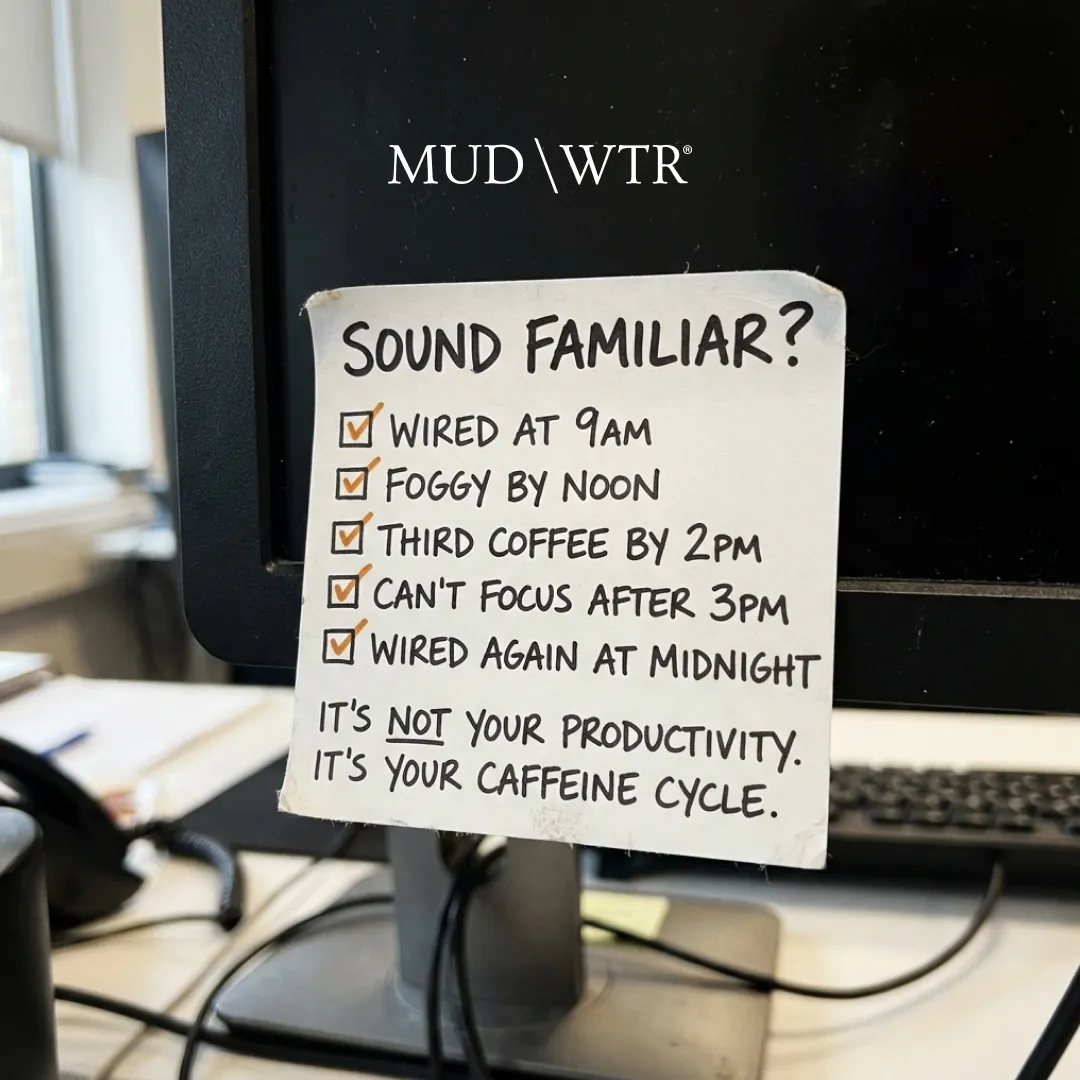 MUD\WTR®
SOUND FAMILIAR?
WIRED AT 9AM
FOGGY BY NOON
THIRD COFFEE BY 2PM
CAN'T FOCUS AFTER 3PM
WIRED AGAIN AT MIDNIGHT
IT'S NOT YOUR PRODUCTIVITY.
IT'S YOUR CAFFEINE CYCLE.